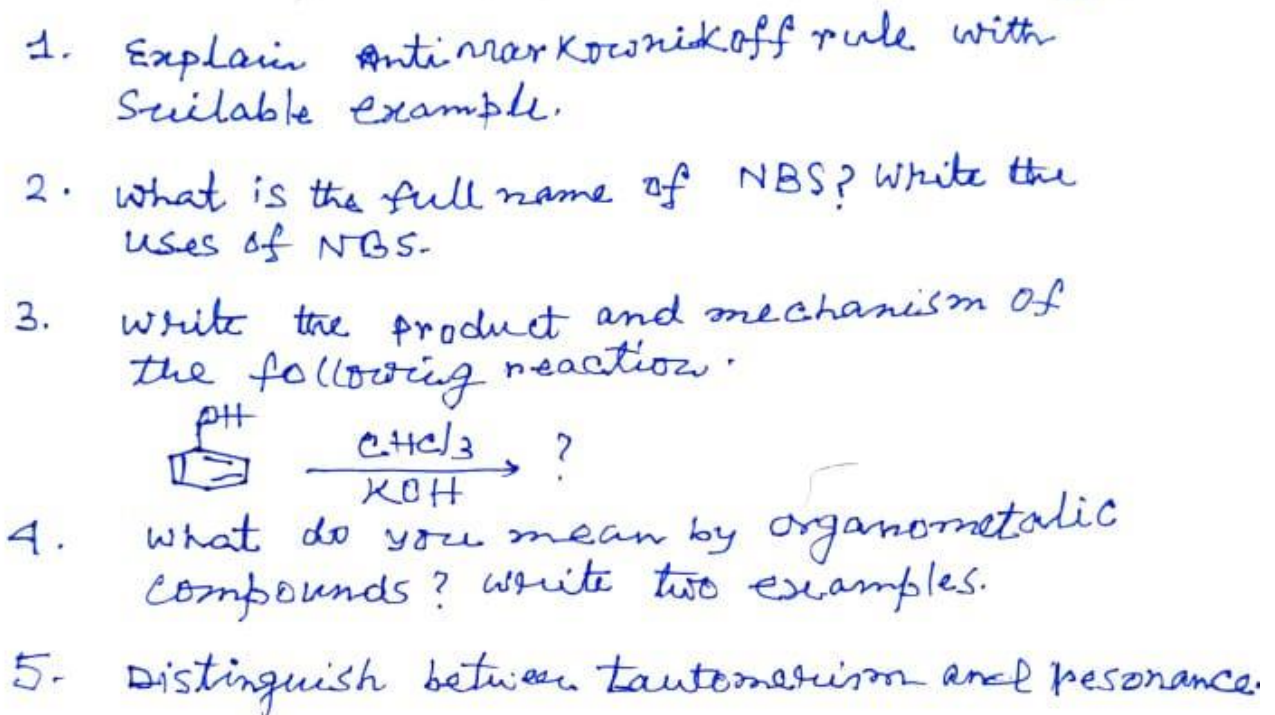 1. Explain Antimarkownikoff rule with
Suilable example.
2. What is the full name of NBS? Write the
uses of NBS.
3. Write the product and mechanism of
the following reaction.
OH
CHCl3
KOH
?
4. What do you mean by organometalic
compounds? Write two examples.
5. Distinguish between tautomerism and resonance.